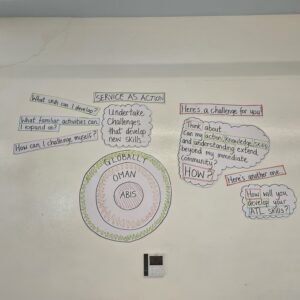 What skill can I develop?
What familiar activities can
I expand on?
How can I challenge myself?
SERVICE AS ACTION
Undertake
Challenges
that develop
new skills
GLOBALLY
OMAN
ABIS
Here's a challenge for you!
Think about
Can my action/knowledge/skills
and understanding extend
beyond my immediate
community?
HOW?
Here's another one
How will you
develop your
ATL skills?